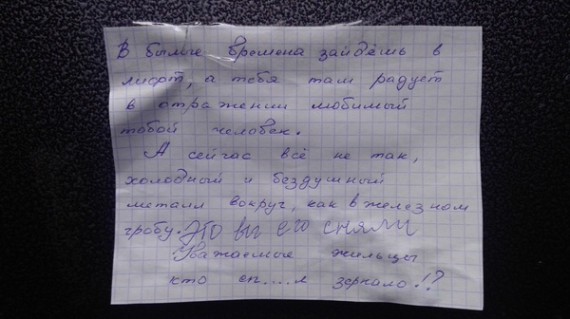 В былые времена зайдёшь в
лифт, а тебя там радует
в отражении любимый
тобой человек.
А сейчас всё не так,
холодный и бездушный
металл вокруг, как в железном
гробу. ЭТО ВЫ ЕГО СНЯЛИ
Уважаемые жильцы
кто сп....л зеркало!?